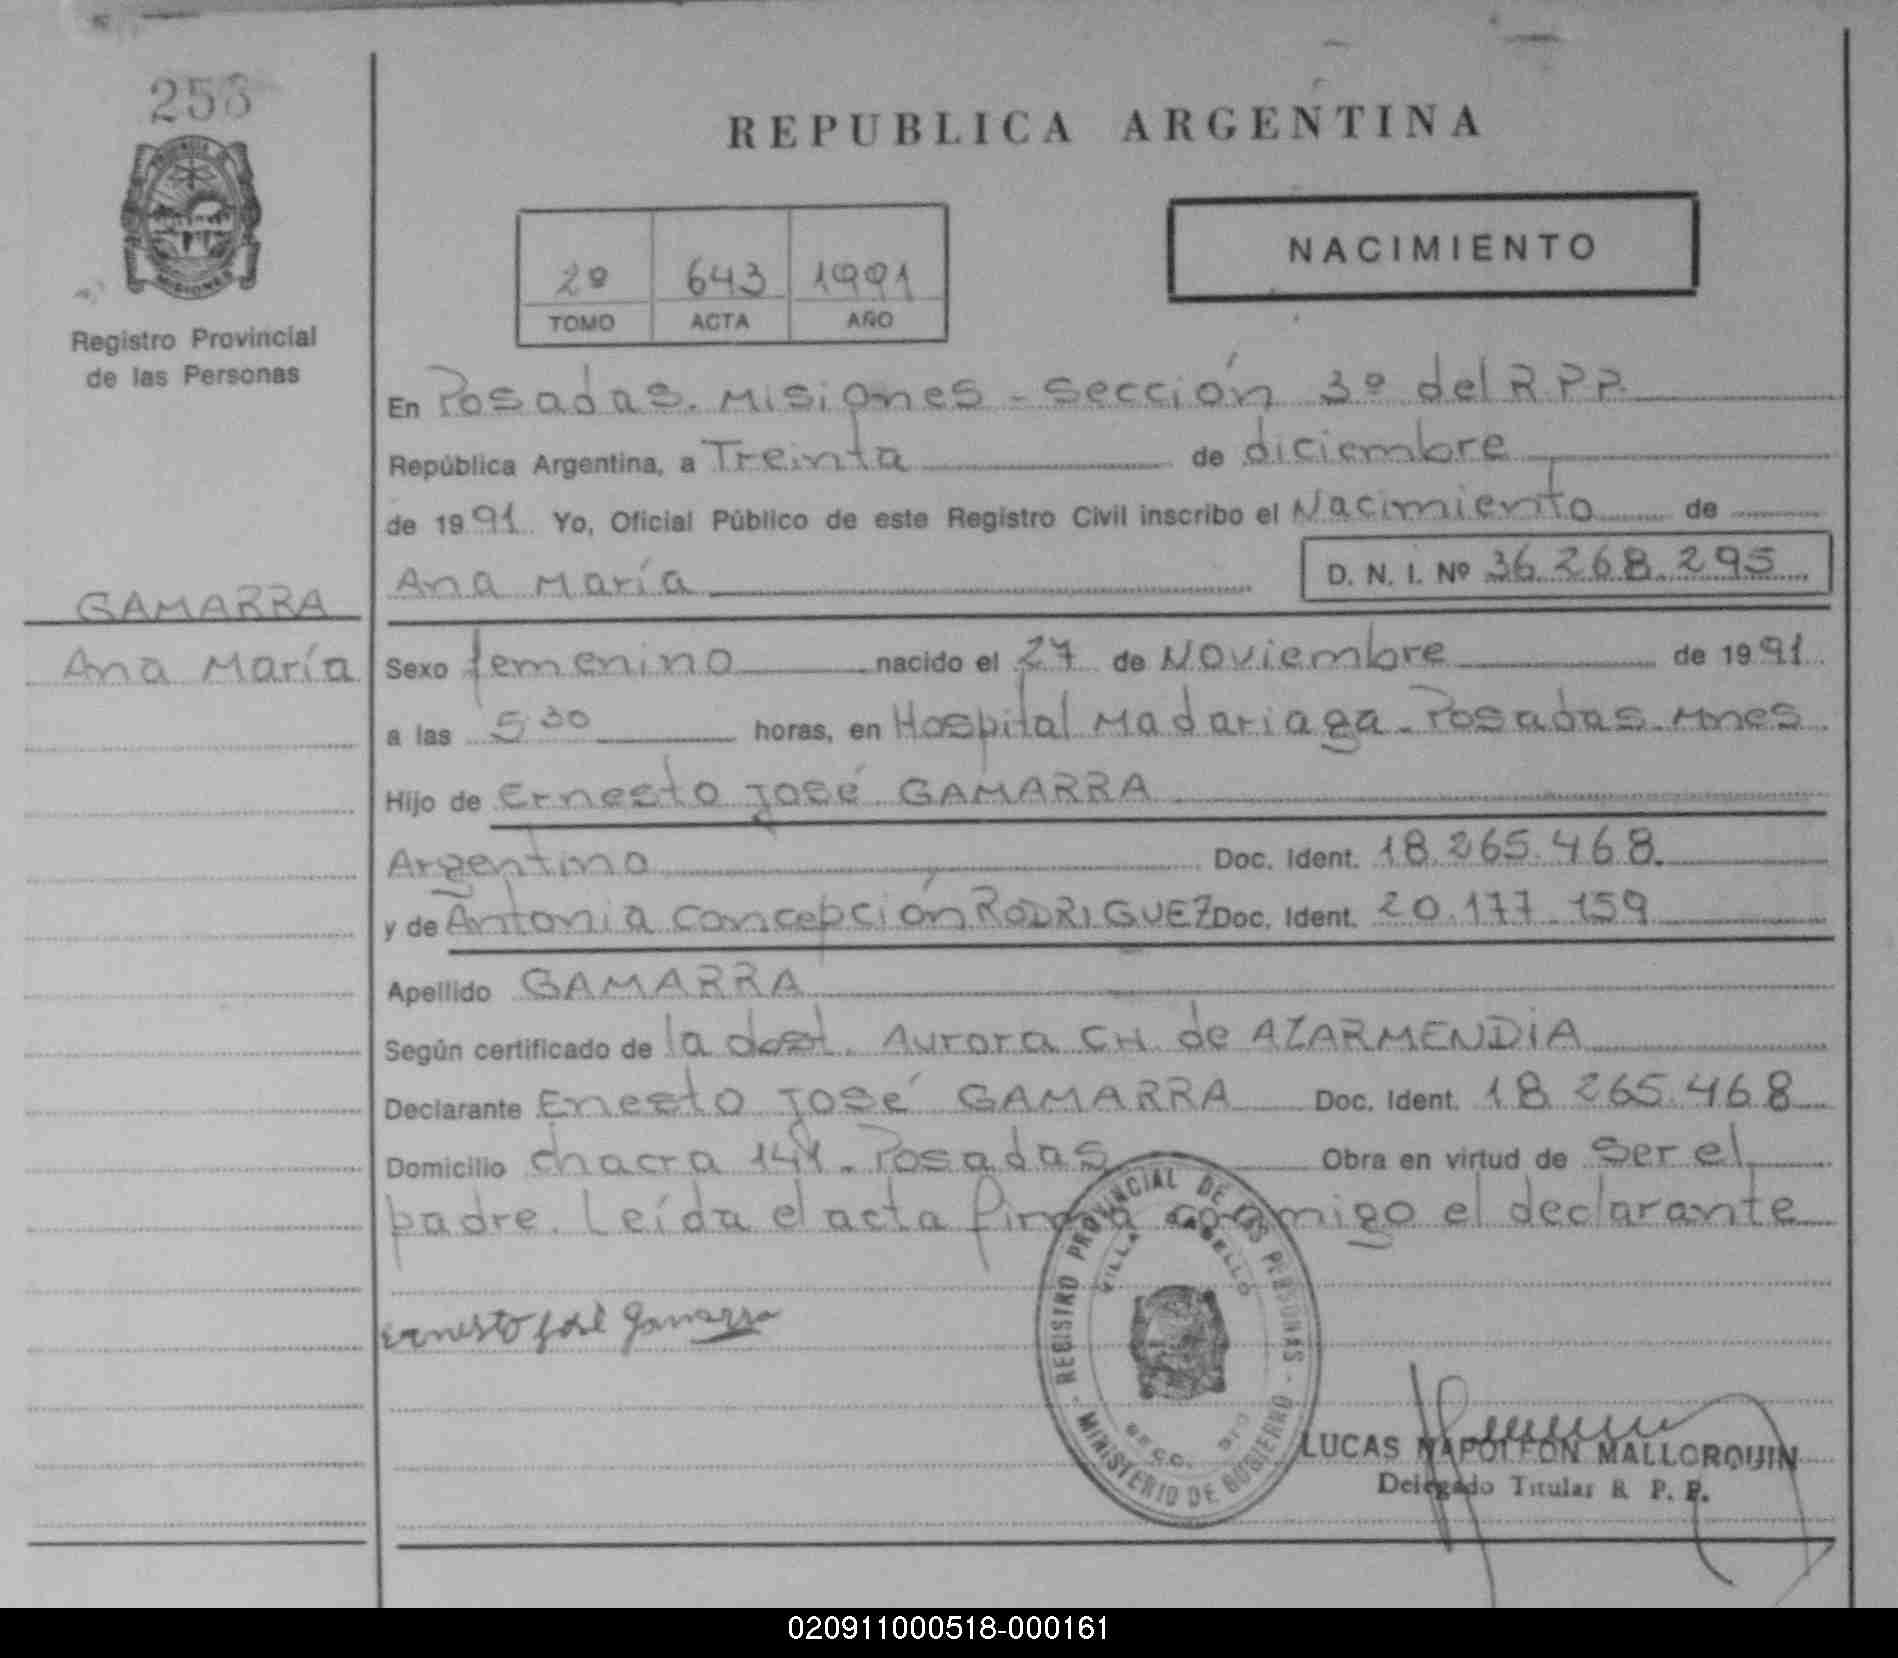 258
REPUBLICA ARGENTINA
NACIMIENTO
2º 643 1991
TOMO ACTA AÑO
Registro Provincial
de las Personas
En Posadas. Misiones - Sección 3º del R.P.P.
República Argentina, a Treinta de diciembre
de 1991 Yo, Oficial Público de este Registro Civil inscribo el Nacimiento de
Ana María D. N. I. Nº 36.268.295
GAMARRA
Ana María
Sexo femenino nacido el 27 de Noviembre de 1991
a las 5:30 horas, en Hospital Madariaga - Posadas. Mnes
Hijo de Ernesto José GAMARRA
Argentino Doc. Ident. 18.265.468.
y de Antonia Concepción RODRIGUEZ Doc. Ident. 20.177.159
Apellido GAMARRA
Según certificado de la doct. Aurora CH. de AZARMENDIA
Declarante Enesto José GAMARRA Doc. Ident. 18.265.468
Domicilio Chacra - Posadas Obra en virtud de ser el
padre. Leída el acta firma conmigo el declarante
Ernesto José Gamarra
REGISTRO PROVINCIAL DE LAS PERSONAS
VILLA CABELLO
MINISTERIO DE GOBIERNO
LUCAS NAPOLEON MALLORQUIN
Delegado Titular R. P. P.
020911000518-000161